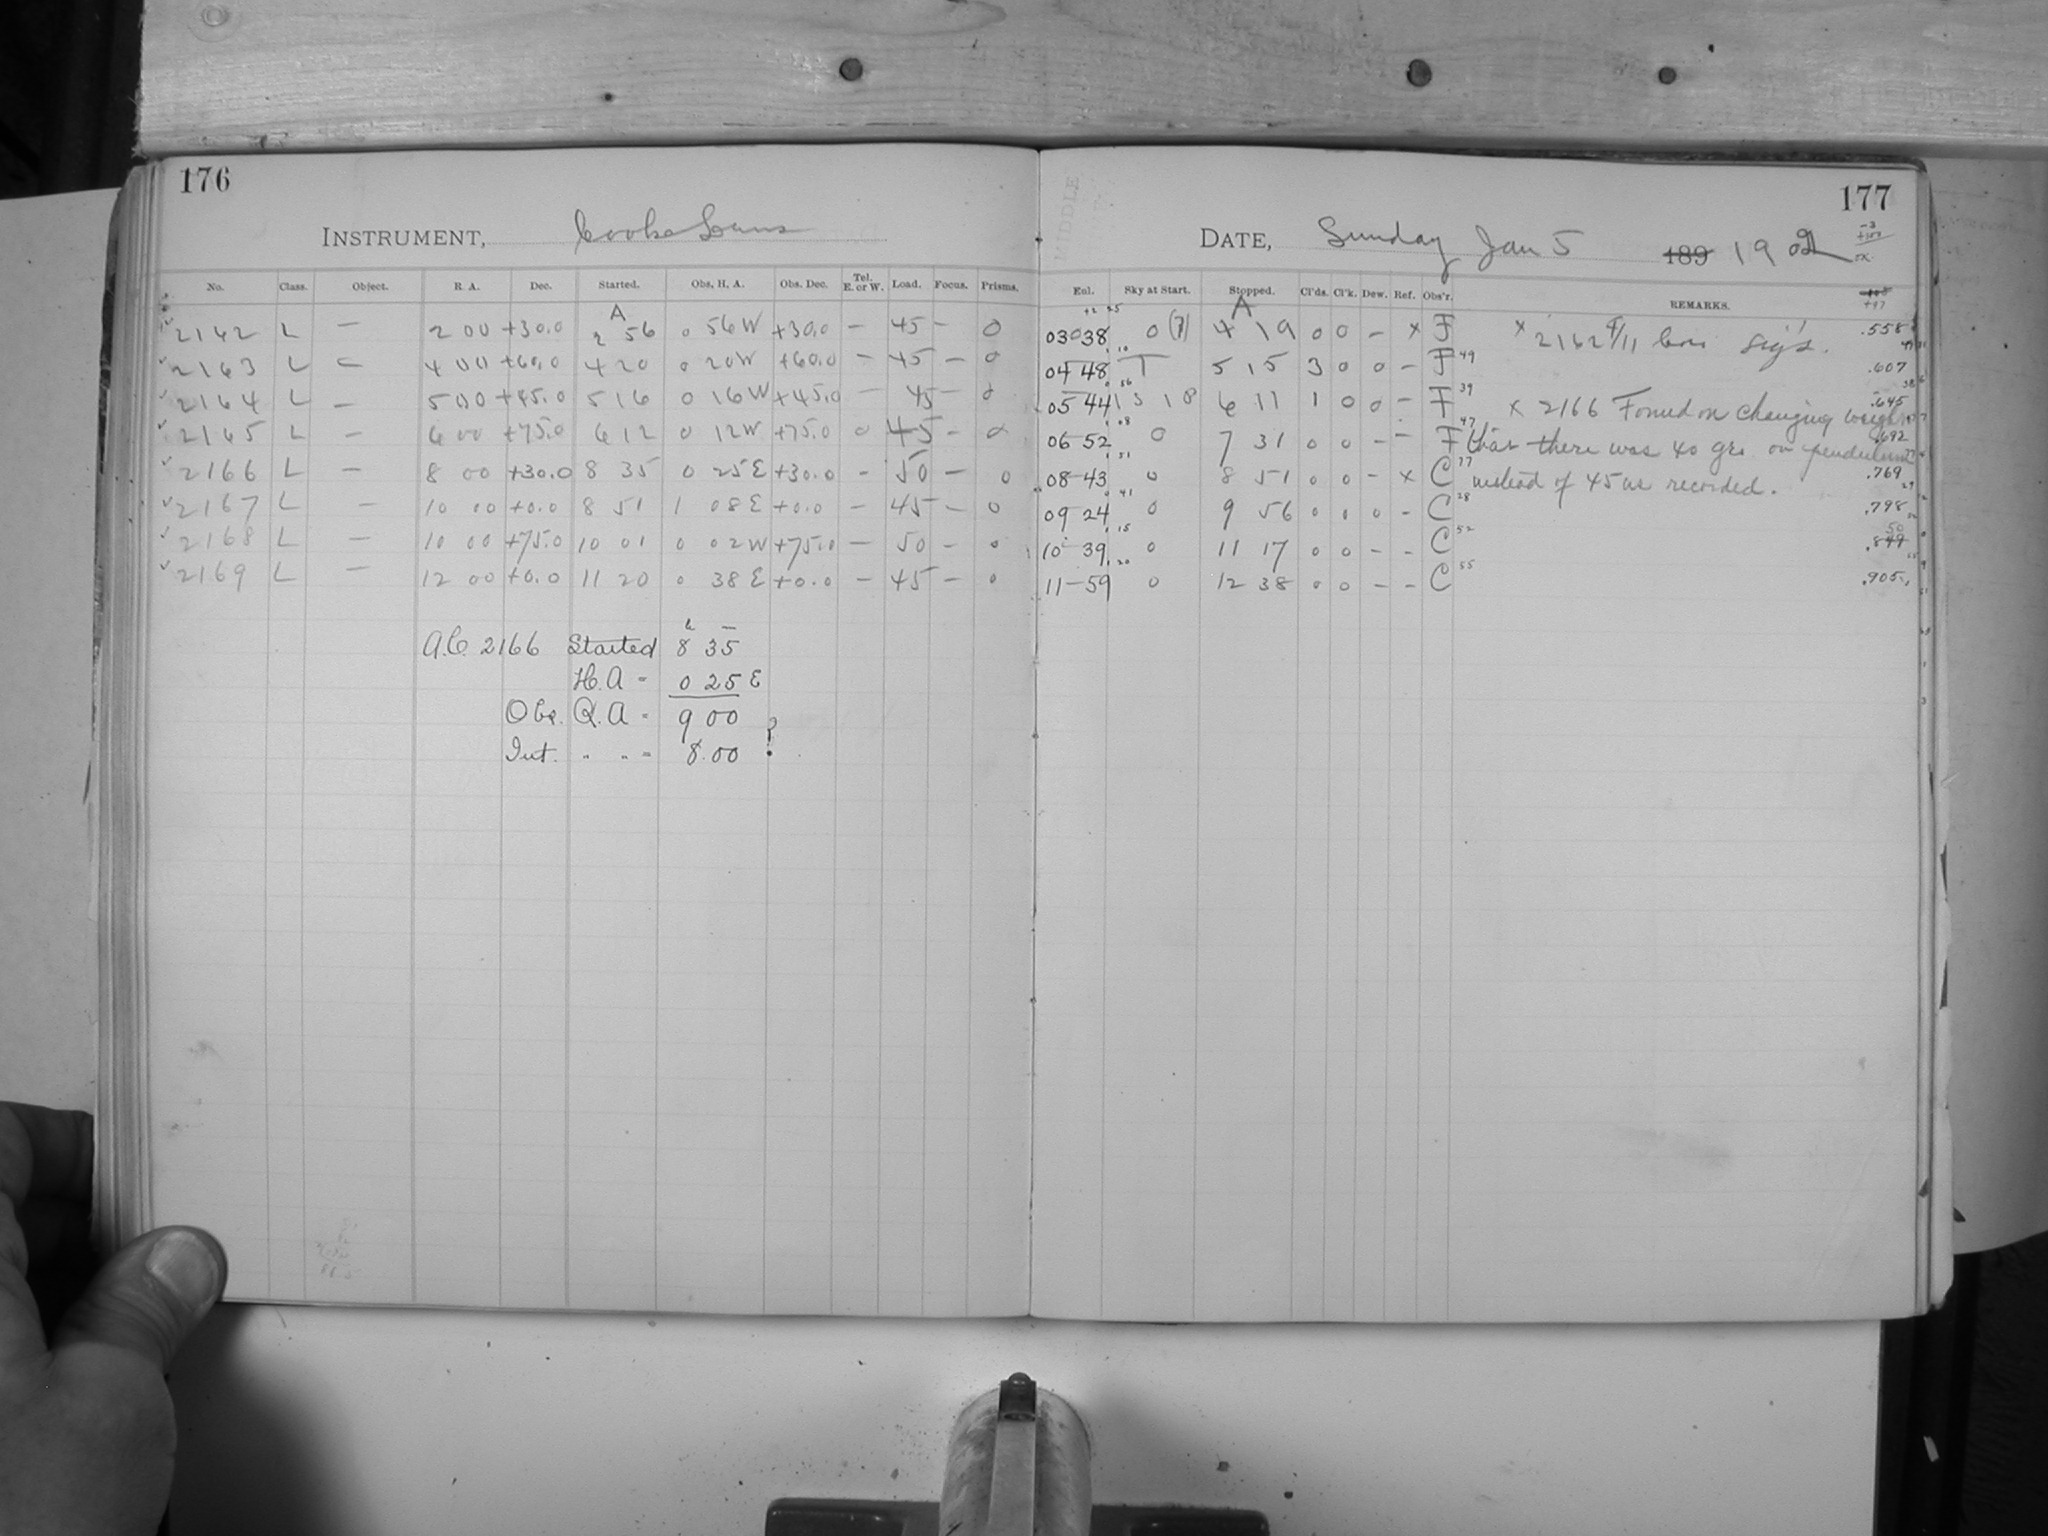 176
INSTRUMENT, Cooke Lens
No. Class. Object. R. A. Dec. Started. Obs. H. A. Obs. Dec. Tel. E. or W. Load. Focus. Prisms.
A
2162 L — 2 00 +30.0 2 56 0 56 W +30.0 — 45 — 0
2163 L — 4 00 +60.0 4 20 0 20 W +60.0 — 45 — 0
2164 L — 5 00 +45.0 5 16 0 16 W +45.0 — 45 — 0
2165 L — 6 00 +75.0 6 12 0 12 W +75.0 0 45 — 0
2166 L — 8 00 +30.0 8 35 0 25 E +30.0 — 50 — 0
2167 L — 10 00 +0.0 8 51 1 08 E +0.0 — 45 — 0
2168 L — 10 00 +75.0 10 01 0 02 W +75.0 — 50 — 0
2169 L — 12 00 +0.0 11 20 0 38 E +0.0 — 45 — 0
A.C. 2166 Started 8 35
H. A = 0 25 E
Obs. R. A = 9 00
Int. " " = 8.00 ?
177
DATE, Sunday Jan 5 189 1902
Exl. Sky at Start. Stopped. Cl'ds. Cl'k. Dew. Ref. Obs'r. REMARKS.
A
03 038 0 (7) 4 19 0 0 — x F x 2162 sig's. .558
04 48 T 5 15 3 0 0 — F 49 .607
05 44 1 5 18 6 11 1 0 0 — F 39 x 2166 Found on changing weight .645
06 52 0 7 31 0 0 — — F 47 that there was 40 grs. on pendulum .692
08 43 0 8 51 0 0 — x C 77 instead of 45 as recorded. .769
09 24 0 9 56 0 1 0 — C 28 .798
10 39 0 11 17 0 0 — — C 52 .849 50
11 — 59 0 12 38 0 0 — — C 55 .905